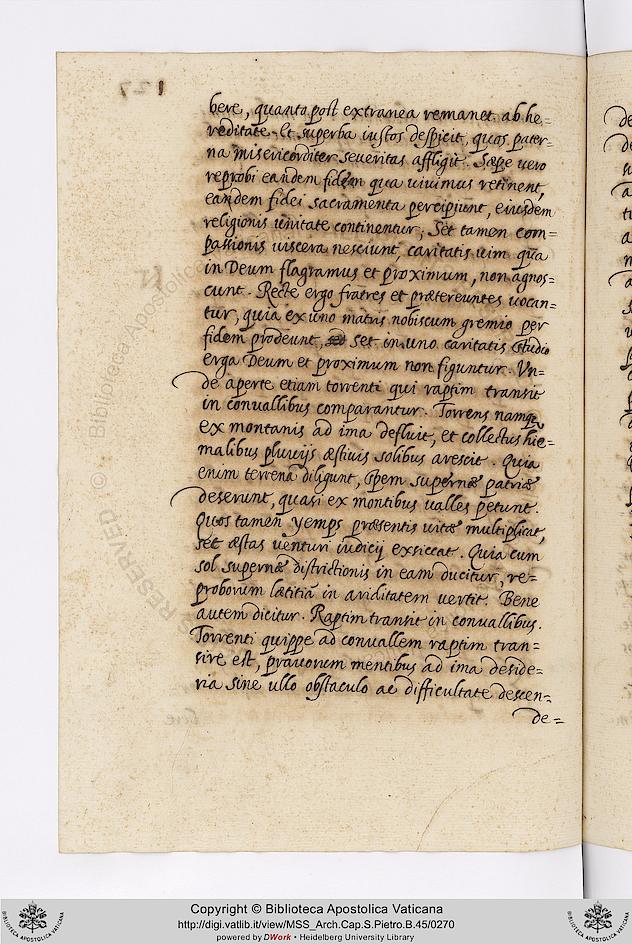 bere, quanto post extranea remanet ab he=
reditate. Et superba iustos despicit, quos pater=
na misericorditer severitas affligit. Sæpe vero
reprobi eandem fidem qua vivimus retinent,
eandem fidei sacramenta percipiunt, eiusdem
religionis unitate continentur; Set tamen com=
passionis viscera nesciunt, caritatis vim qua
in Deum flagramus et proximum, non agnos=
cunt. Recte ergo fratres et prætereuntes vocan=
tur, quia ex uno matris nobiscum gremio per
fidem prodeunt, set in uno caritatis studio
erga Deum et proximum non figuntur. Vn=
de aperte etiam torrenti qui raptim transit
in convallibus comparantur. Torrens namque
ex montanis ad ima defluit, et collectus hie=
malibus pluvijs æstivis solibus arescit. Quia
enim terrena diligunt, spem supernæ patriæ
deserunt, quasi ex montibus valles petunt.
Quos tamen yemps præsentis vitæ multiplicat,
set æstas venturi iudicij exsiccat. Quia cum
sol supernæ districtionis in eam ducitur, re=
proborum lætitiã in ariditatem vertit. Bene
autem dicitur. Raptim transit in convallibus.
Torrenti quippe ad convallem raptim tran=
sire est, pravorum mentibus ad ima deside=
ria sine ullo obstaculo ac difficultate descen=
de=
127
© Biblioteca Apostolica
RESERVED
Copyright © Biblioteca Apostolica Vaticana
http://digi.vatlib.it/view/MSS_Arch.Cap.S.Pietro.B.45/0270
powered by DWork • Heidelberg University Library